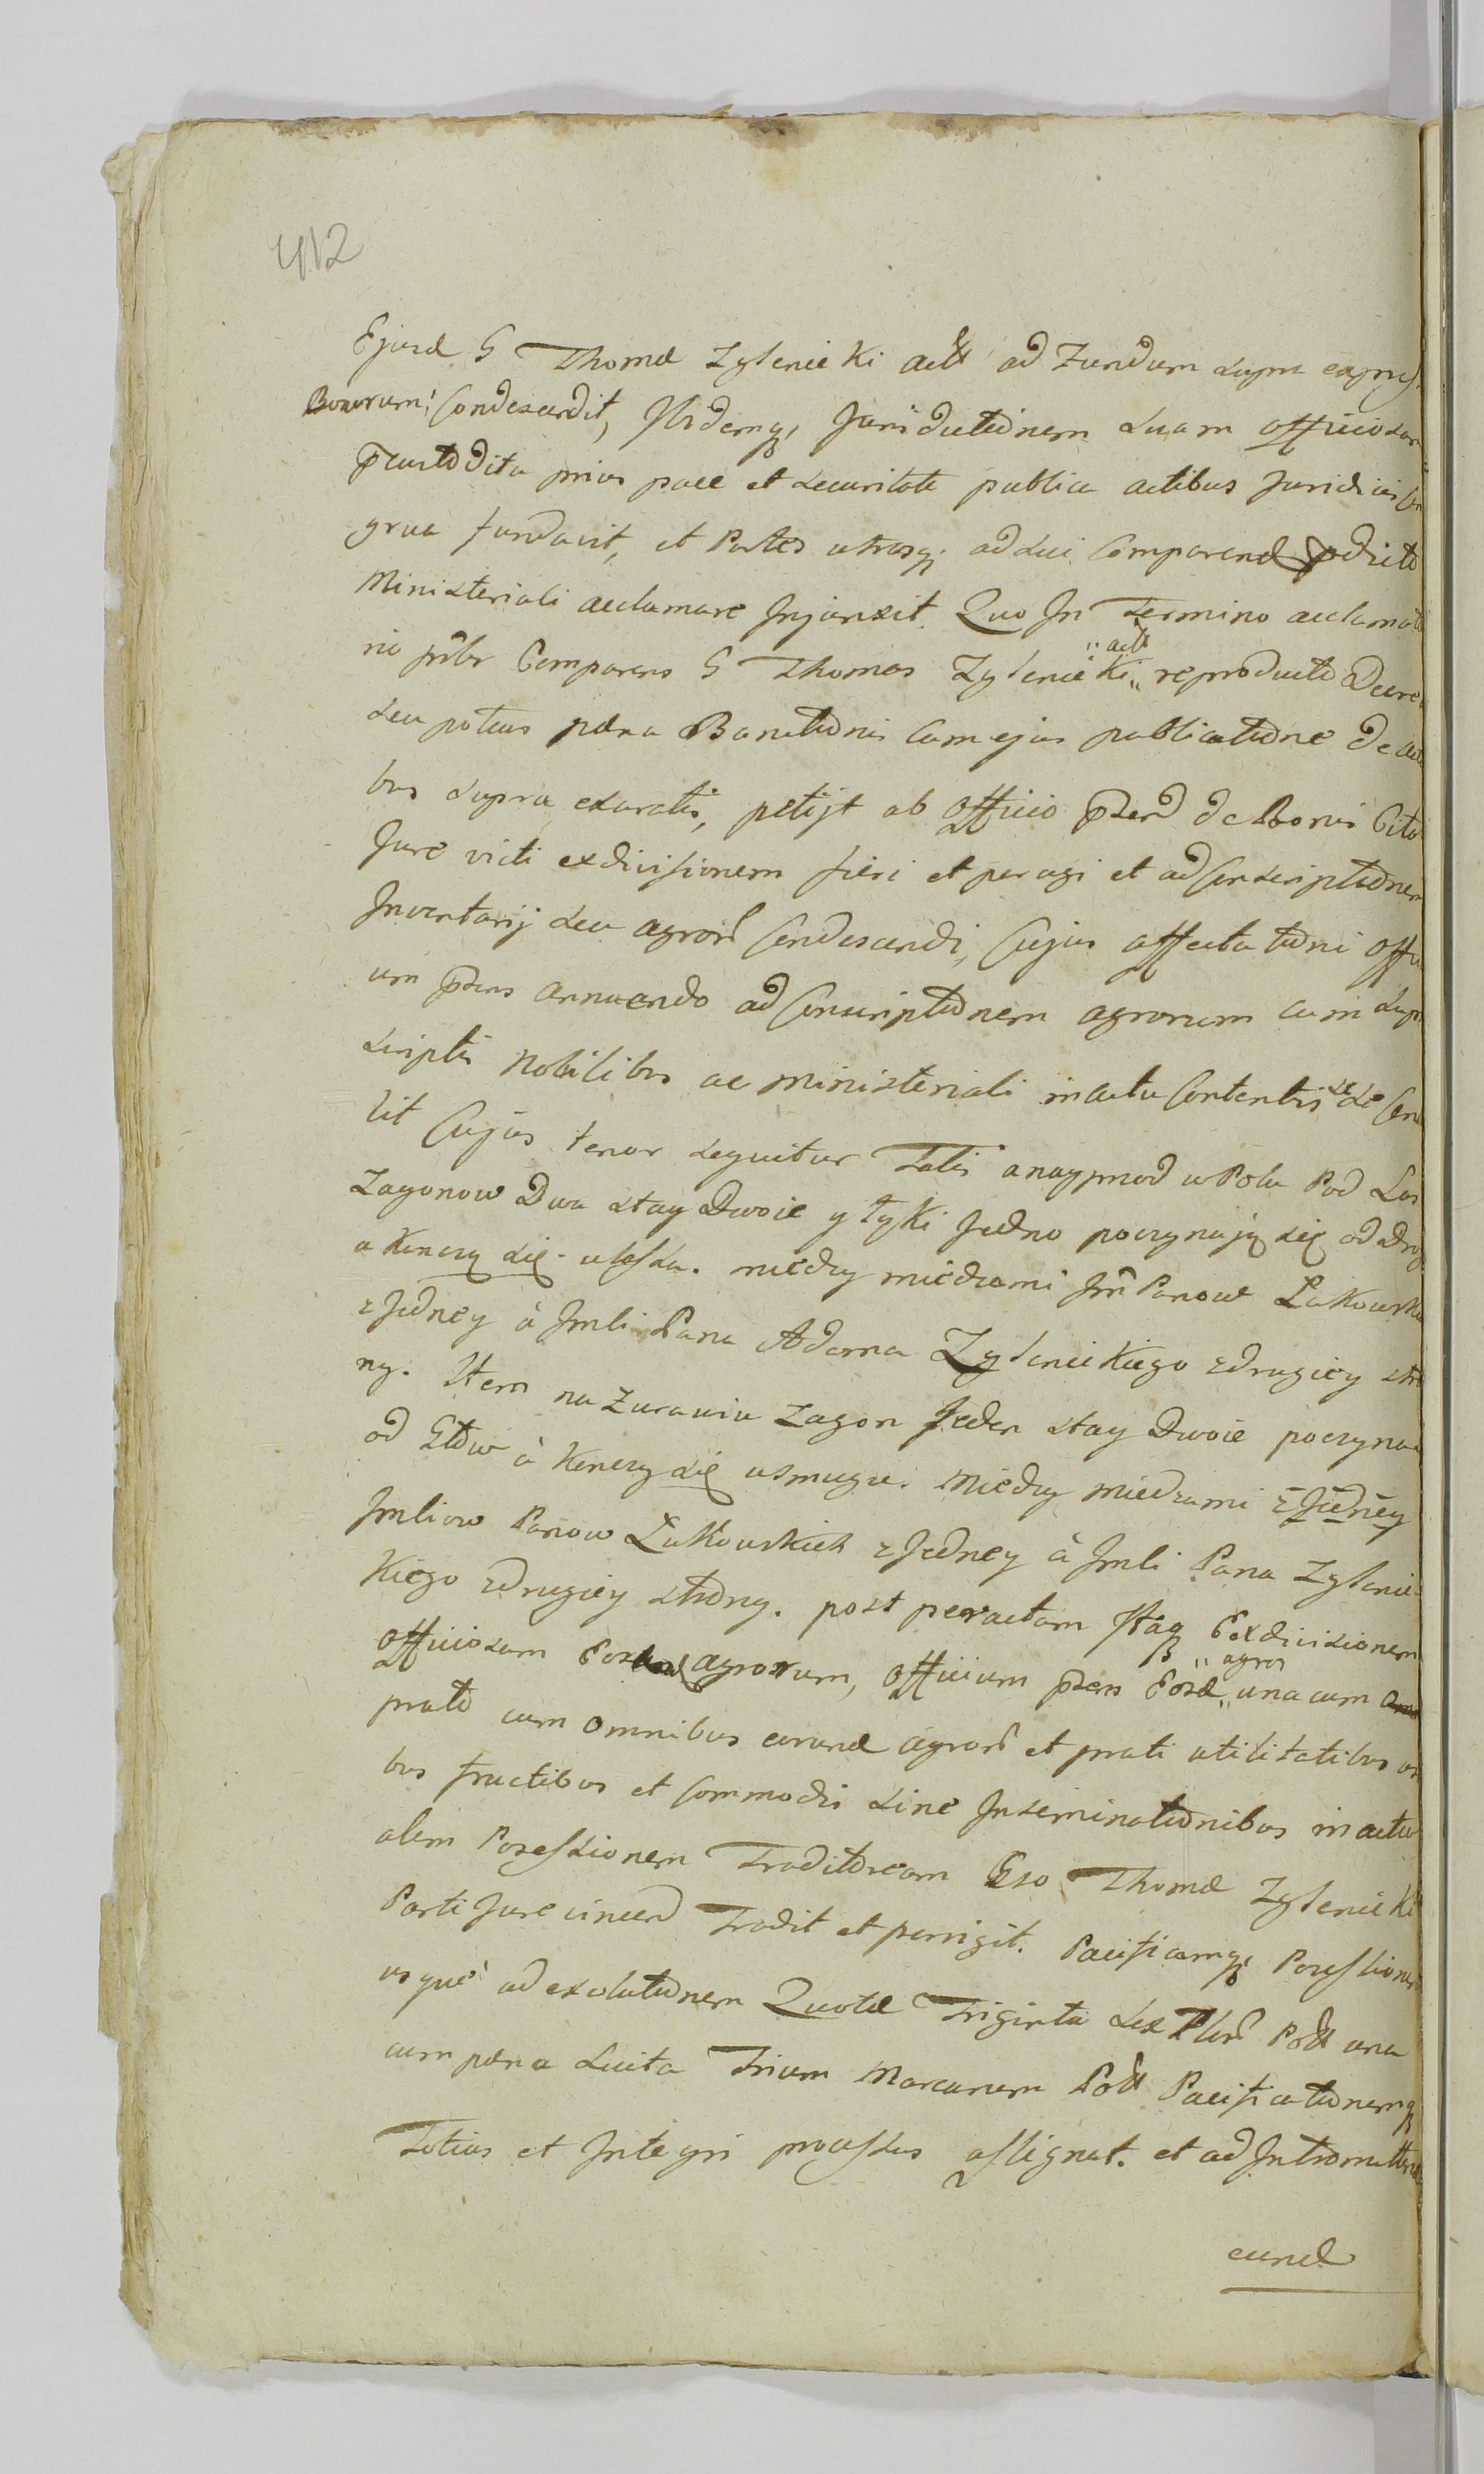 412
Ejusd G Thomæ Zylenieki actt ad Fundum supra express
Bonorum Condescendit, Ibidemq, Jurisdictionem suam officiosam
Pcustodita prius pace et securitate publica actibus Juridicis con
grua fundavit, et Partes utrasq; ad sui Comparend
Ministeriali acclamare Injunxit. Quo In Termino acclamato
rio prlr Comparens G Thomas Zylenieki "actt" reproducto Decreto
seu potius pæna Banitionis cum ejus publicatione de acti
bus supra exaratis, petijt ab Officio Pserd de Bonis Cito
Jure victi exdivisionem fieri et peragi et ad Conscriptionem
Inventarij seu agror Condescendi, Cujus affectationi Offici
um Psens annuendo ad Conscriptionem agrorum cum supra
scriptis Nobilibus ac ministeriali in actu Contentis se
lit Cujus tenor sequitur Talis a naypmod w Polu Pod Las
Zagonow Dwa stay Dwoie y łyki Jedno poczynają się od Drog
a Konczą się u lasku. miedzy miedzami Jm Panow Łukowski
z Jedney à Jmli Pana Adama Zylenickiego z drugiey stro
ny. Item na Zurawiu Zagon Jeden stay Dwoie poczyna
od à Konczy się u Smugu. Miedzy miedzami z Jedney
Jmliow Panow Łukowskich z Jedney à Jmli Pana Zylenic
Kiego z drugiey strony. post peractam Itaq Exdivisionem
Officiosam agrorum, Officium Psens Eosd "agros" una cum
prato cum omnibus eorund agror et prati utilitatibus
bus fructibus et Commodis sine Inseminationibus in actu
alem Possessionem Traditoream Gso Thomæ Zylenicki
Parti Jure vincend Tradit et porrigit. Pacificamq, Possessionem
usque ad exolutionem Quotæ Triginta sex Flor Poll una
cum pæna Luita Trium Marcarum Poll Pacificationemq
Totius et Integri processus assignat. et ad Intromittend
eund